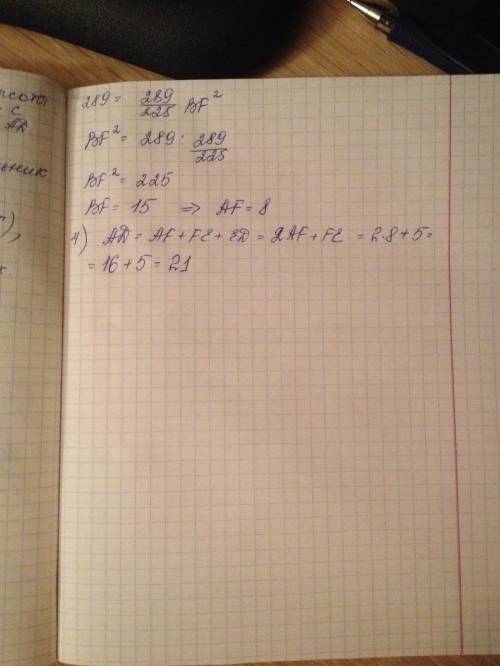 289 = 289/225 BF²
BF² = 289 : 289/225
BF² = 225
BF = 15 ⇒ AF = 8
4) AD = AF + FE + ED = 2AF + FE = 2·8 + 5 =
= 16 + 5 = 21